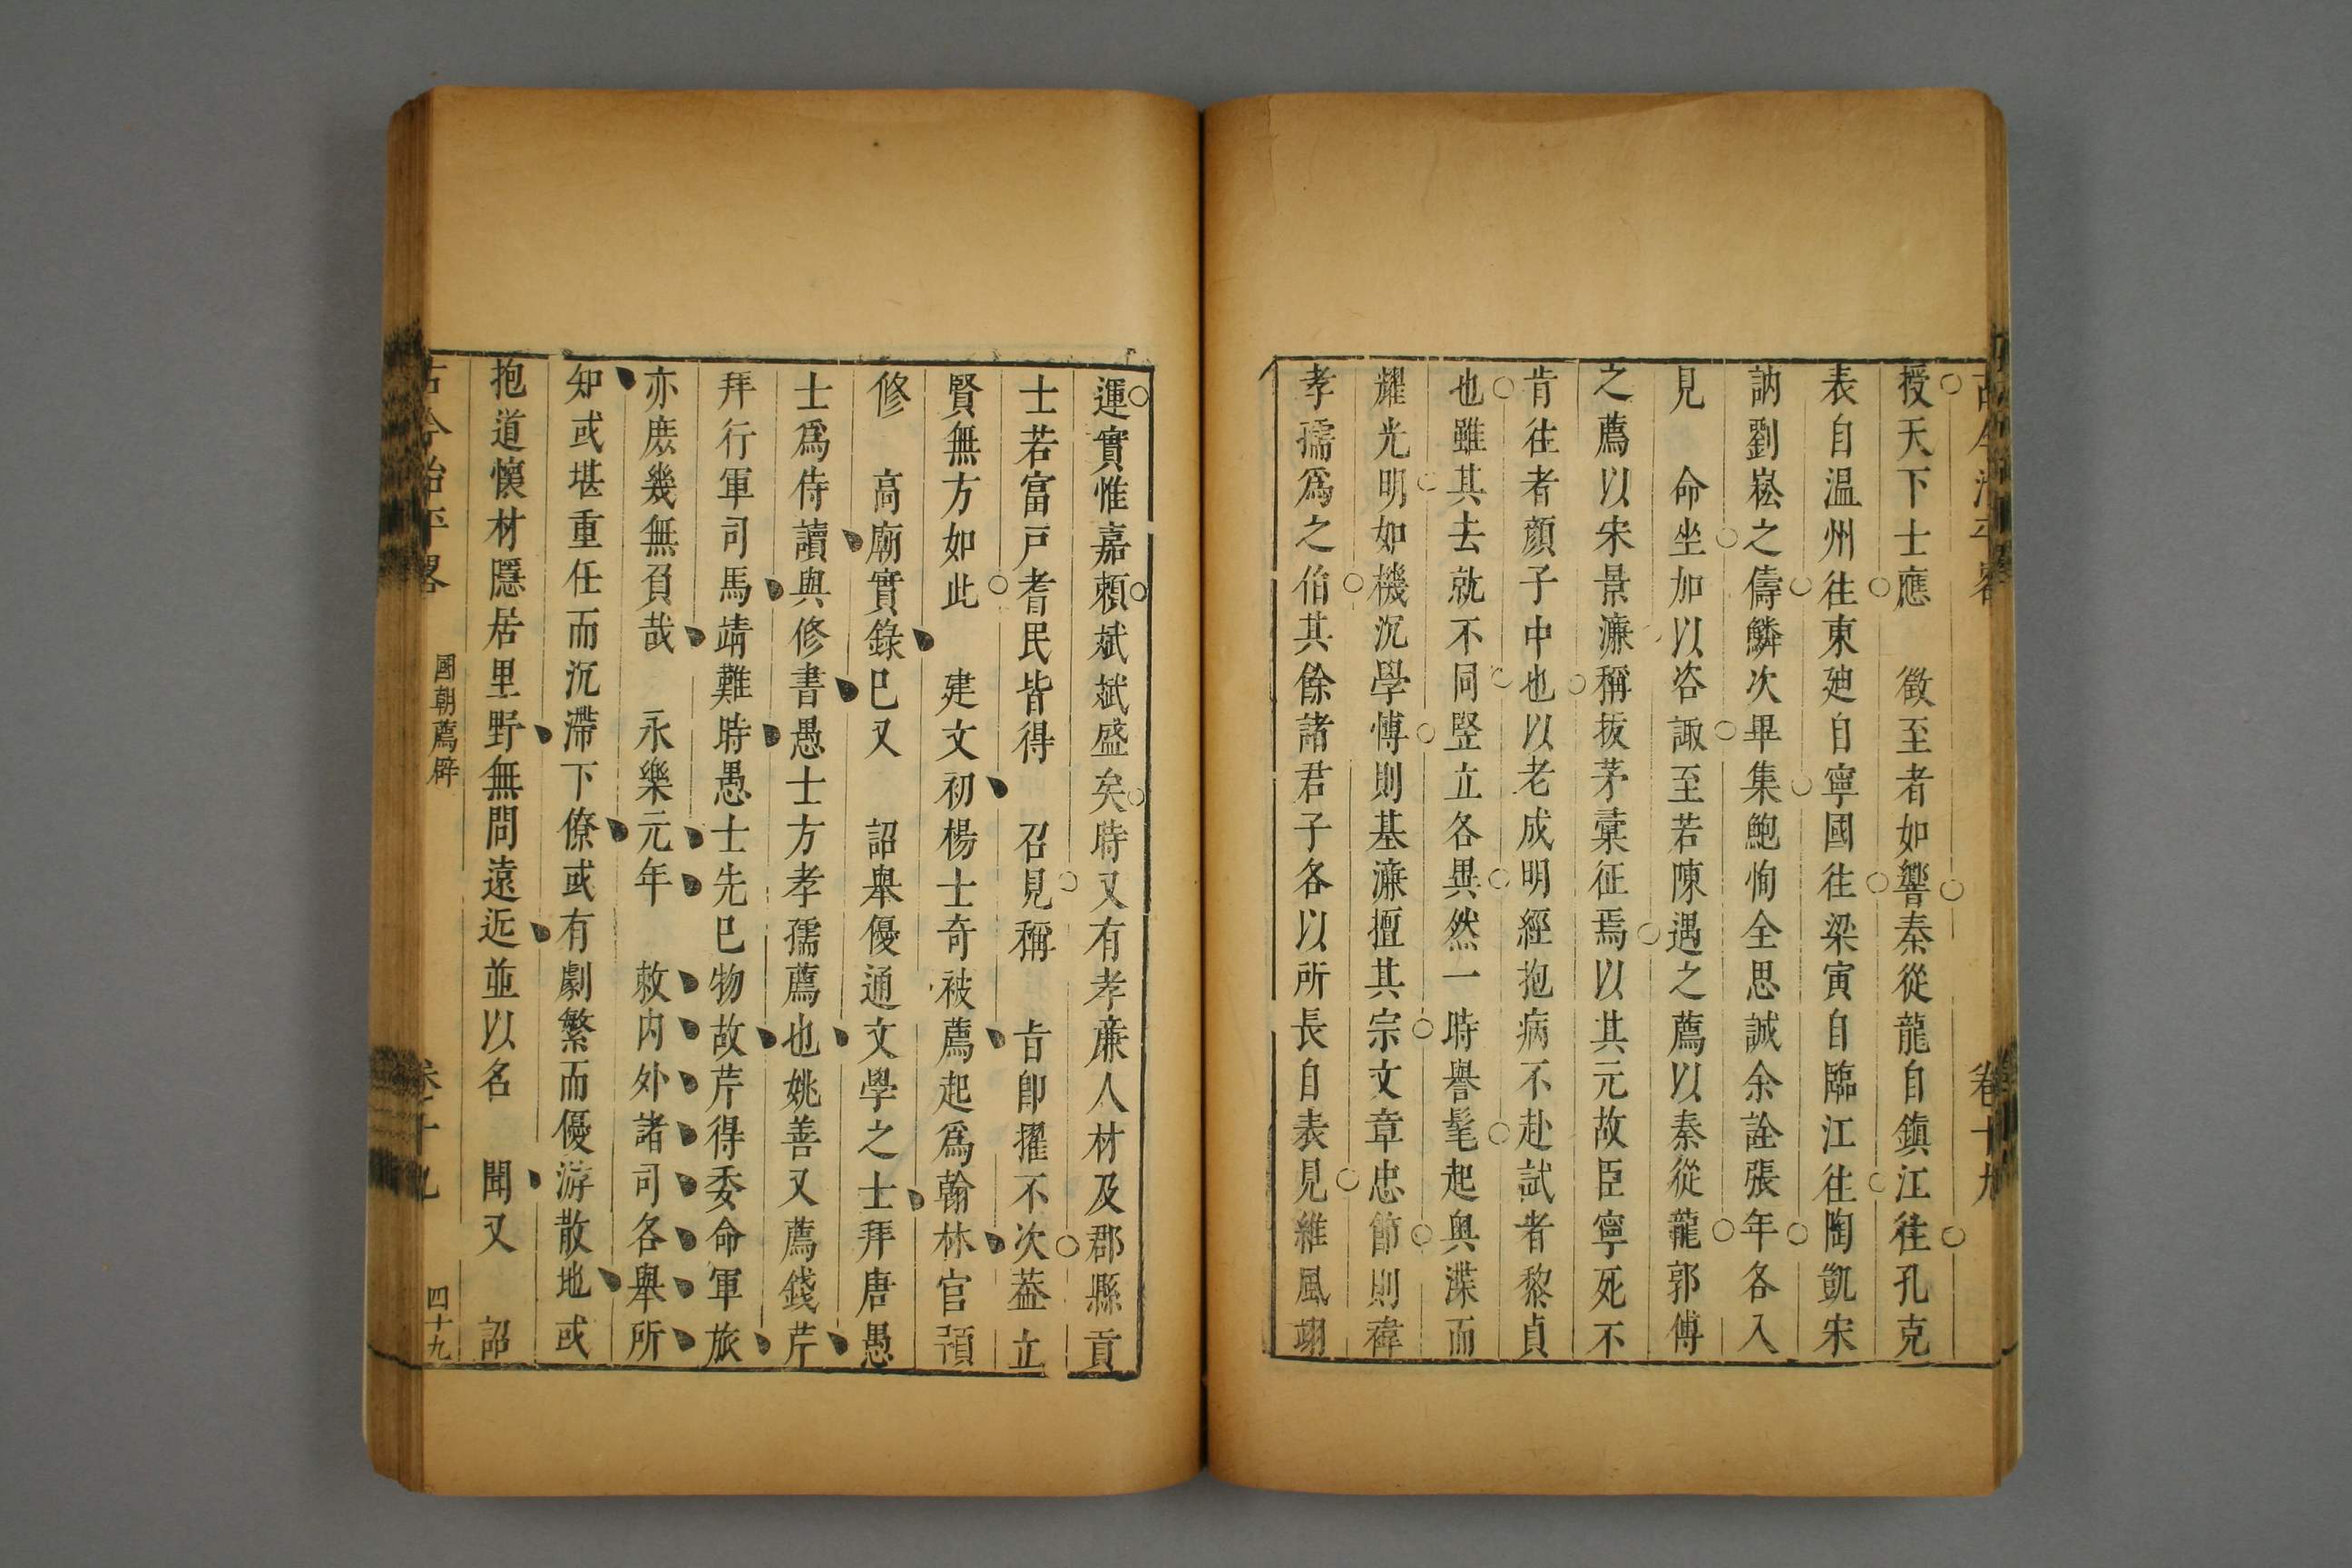 授天下士應　徵至者如響秦從龍自鎮江往孔克
表自温州往東廸自寧國往梁寅自臨江往陶凱宋
訥劉崧之儔鱗次畢集鮑恂全思誠余詮張年各入
見　命坐加以咨諏至若陳遇之薦以秦從龍郭傅
之薦以宋景濂稱拔茅彙征焉以其元故臣寧死不
肯往者顏子中也以老成明經抱病不赴試者黎貞
也雖其去就不同竪立各異然一時譽髦起輿渫而
耀光明如機沉學愽則基濂擅其宗文章忠節則禕
孝孺爲之伯其餘諸君子各以所長自表見維風翊
運實惟嘉頼斌斌盛矣時又有孝亷人材及郡縣貢
士若富戸耆民皆得　召見稱　旨卽擢不次葢立
賢無方如此　建文初楊士奇被薦起爲翰林官預
修　高廟實錄巳又　詔舉優通文學之士拜唐愚
士爲侍讀與修書愚士方孝孺薦也姚善又薦錢芹
拜行軍司馬靖難時愚士先巳物故芹得委命軍旅
亦庻幾無負哉　永樂元年　敕内外諸司各舉所
知或堪重任而沉滯下僚或有劇繁而優游散地或
抱道懐材隱居里野無問遠近並以名　聞又　詔
古今治平畧　國朝薦辟　卷十九　四十九